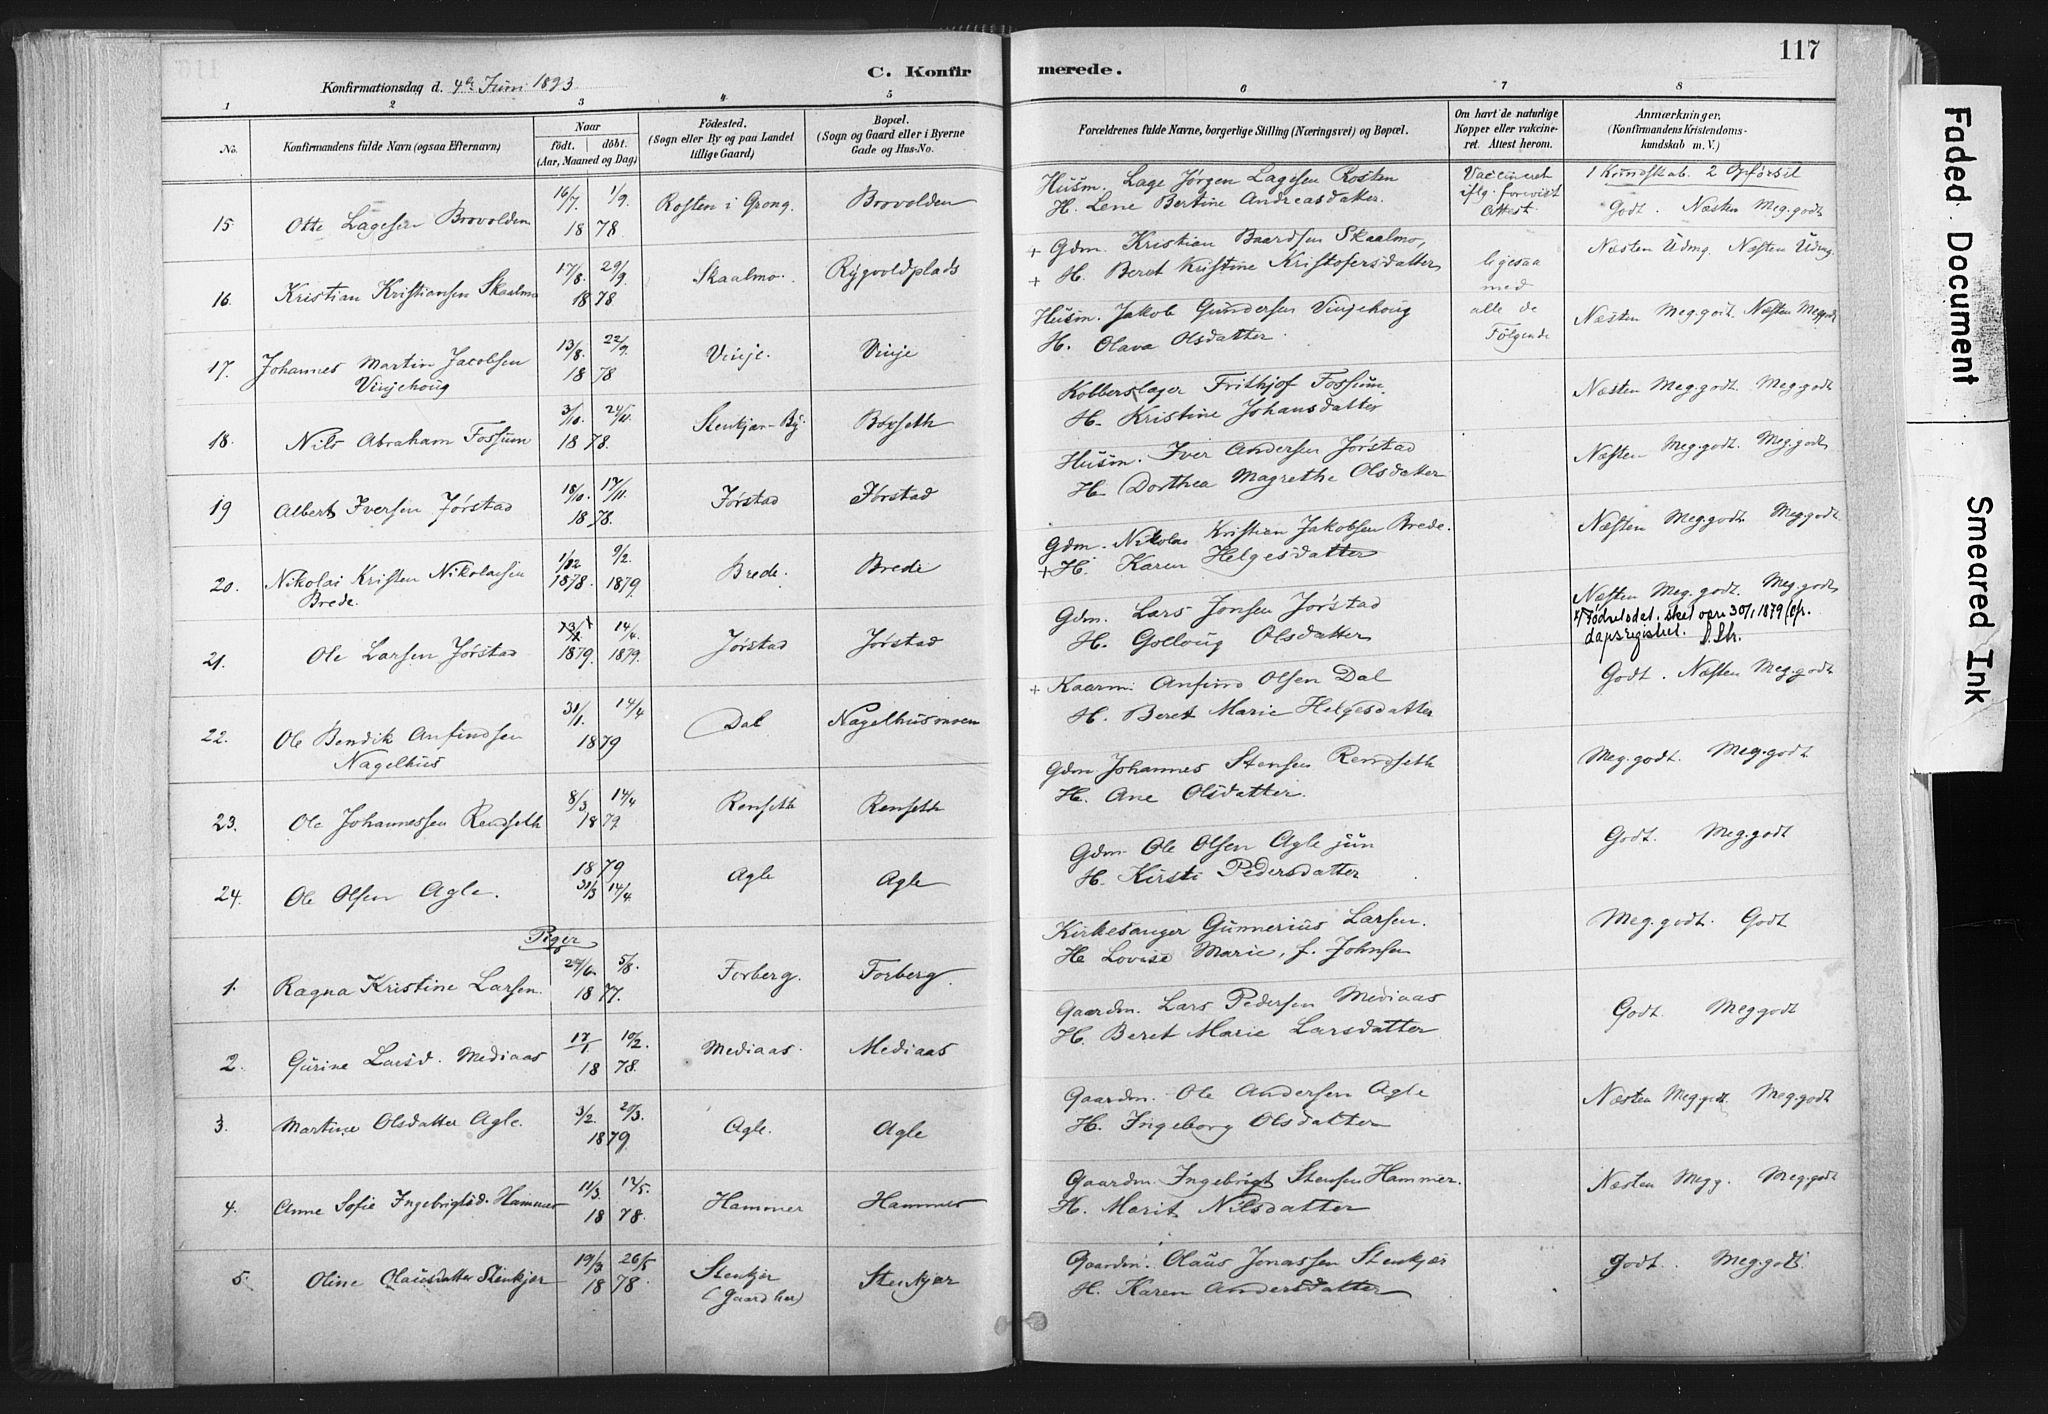 117
C. Konfirmerede.
Konfirmationsdag d. 4de Juni 1893
1 2 3 4 5 6 7 8
No.
Konfirmandens fulde Navn (ogsaa Efternavn)
Naar
født. døbt.
(Aar, Maaned og Dag)
Fødested.
(Sogn eller By og paa Landet
tillige Gaard)
Bopæl.
(Sogn og Gaard eller i Byerne
Gade og Hus-No.
Forældrenes fulde Navne, borgerlige Stilling (Næringsvei) og Bopæl.
Om havt de naturlige
Kopper eller vaccine-
ret. Attest herom.
Anmærkninger.
(Konfirmandens Kristendoms-
kundskab m. V.)
15. Otte Lagesen Brovolden 16/7. 1/9. 1878. Rosten i Grong. Brovolden
Husm. Lage Jørgen Lagesen Rosten
H. Lene Bertine Andreasdatter.
Vaccineret
iflg. forevist
Attest
1 Kundskab. 2 Opførsel
Godt. Næsten Meg.godt
16. Kristian Kristiansen Skaalmo 17/8. 29/9. 1878 Skaalmo. Rygvoldplads
+ Gdm. Kristian Baardsen Skaalmo,
+ H. Beret Kristine Kristofersdatter
ligesaa
med
Næsten Udmg. Næsten Udmg.
17. Johannes Martin Jacobsen
Vinjehoug
13/8. 22/9. 1878 Vinje. Vinje
Husm. Jakob Gundersen Vinjehoug
H. Olava Olsdatter.
alle de
Følgende
Næsten Meg.godt. Næsten Meg.godt
18. Nils Abraham Fossum 3/10. 24/11. 1878. Stenkjær-By.
Kobberslager Frithjof Fossum
H. Kristine Johansdatter
Næsten Meg.godt. Meg.godt
19 Albert Iversen Jørstad 18/10. 17/11. 1878. Jørstad Jørstad
Husm. Iver Andersen Jørstad
H. Dorthea Magrethe Olsdatter
Næsten Meg.godt. Meg.godt
20. Nikolai Kristen Nikolaisen
Brede.
1/12 1878. 9/2. 1879 Brede. Brede
Gdm. Nikolai Kristian Jakobsen Brede.
+ H. Karen Helgesdatter
Næsten Meg.godt. Meg.godt
21. Ole Larsen Jørstad 1879. 14/4. 1879. Jørstad Jørstad
Gdm. Lars Jonsen Jørstad
H. Gollaug Olsdatter
Næsten Meg.godt. Meg.godt
x) Fødselsdat. skal være 30/1 1879 (cfr.
dapsregistret.
22. Ole Bendik Anfindsen
Nagelhus
31/1. 14/4 1879 Dal Nagelhusmoen
+ Kaarm. Anfind Olsen Dal
H. Beret Marie Helgesdatter
Godt. Næsten Meg.godt
23. Ole Johannessen Rendseth 8/3. 14/4 1879. Renseth Renseth
Gdm Johannes Stensen Rendseth
H. Ane Olsdatter.
Meg.godt. Meg.godt
24. Ole Olsen Agle. 1879 31/3 14/4 Agle Agle
Gdm. Ole Olsen Agle jun
H. Kirsti Pedersdatter
Godt. Meg.godt
Piger
1. Ragna Kristine Larsen. 5/8. 1877. Forberg. Forberg.
Kirkesanger Gunnerius Larsen.
H. Lovise Marie, f. Johnsen
Meg.godt. Godt
2. Gurine Larsd. Mediaas 17/1 10/2. 1878. Mediaas. Mediaas
Gaardm. Lars Pedersen Mediaas
H. Beret Marie Larsdatter
Godt. Meg.godt
3. Martine Olsdatter Agle. 3/2. 20/3. 1879 Agle. Agle
Gaardm. Ole Andersen Agle
H. Ingeborg Olsdatter
Næsten Meg.godt Meg.godt
4. Anne Sofie Ingebrigtsd. Hammer 11/3. 12/5. 1878. Hammer Hammer
Gaardm. Ingebrigt Stensen Hammer.
H. Marit Nilsdatter
Næsten Meg g. Meg.godt
5. Oline Olausdatter Stenkjær 19/3. 26/5 1878. Stenkjær
(Gaard her)
Stenkjær
Gaardm. Olaus Jonassen Stenkjær
H. Karen Andersdatter
Godt. Meg.godt.
Faded Document
Smeared Ink